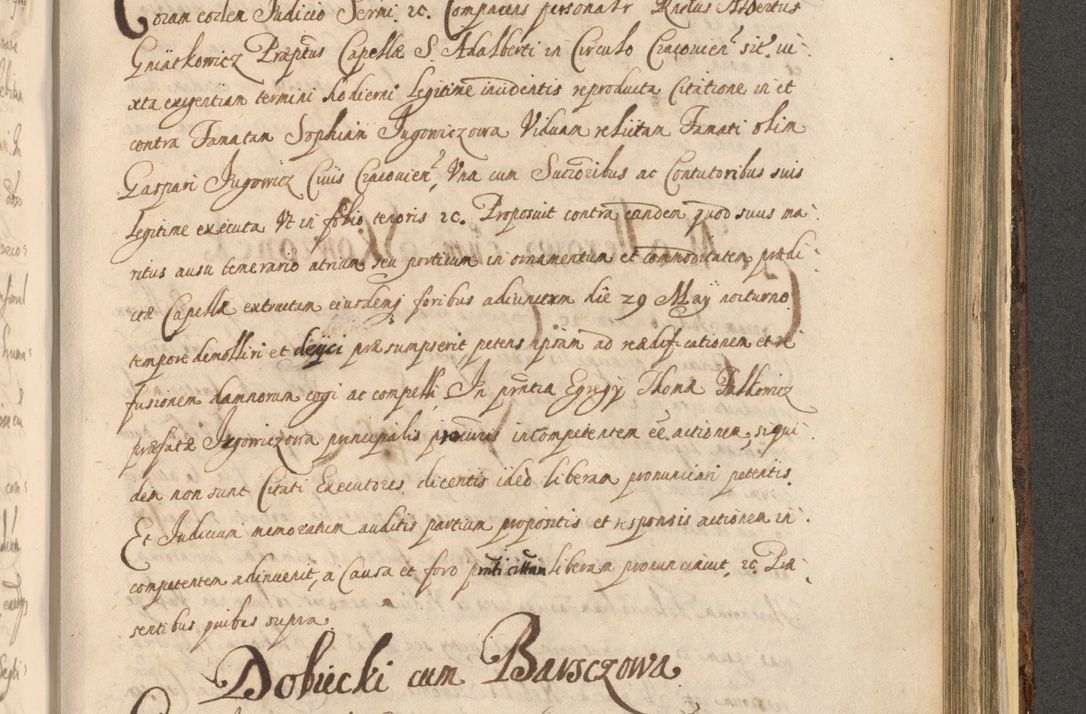 Coram eodem Judicio Sermi. 2c. Comparens personalr Rndus Albertus
Gniatkowicz Præptus Capellæ S. Adalberti in Circulo Cracovien sit. iu
xta exigentiam termini hodierni legitime incidentis reproducta Citatione in et
contra Famatam Sophiam Jugowiczowa Viduam relictam Famati olim
Gaspari Jugowicz Civis Cracovien, Una cum Suctoribus ac Contutoribus suis
legitime executa Ut in folio tenoris 2c. Proposuit contra eandem quod suus ma
ritus ausu temerario atrium seu porticum in ornamentum et commoditatem prædi
ctæ Capellæ extructum eiusdemq foribus adiunctum die 29 Maÿ nocturno
tempore demolliri et deijci præsumpserit petens ipsam ad reædificationem et re
fusionem damnorum cogi ac compelli. In pntia Egregÿ Thomæ Palkowicz
præfatæ Jugowiczowa principalis procuris incompetentem ee actionem, siqui
dem non sunt Citati Executores dicentis ideo liberam pronunciari petentis.
Et Judicium memoratum auditis partium propositis et responsis actionem in
competentem adinvenit, a Causa et foro pnti cittam liberam pronunciavit, 2c. Præ
sentibus quibus supra.
Dobiecki cum Barsczowa